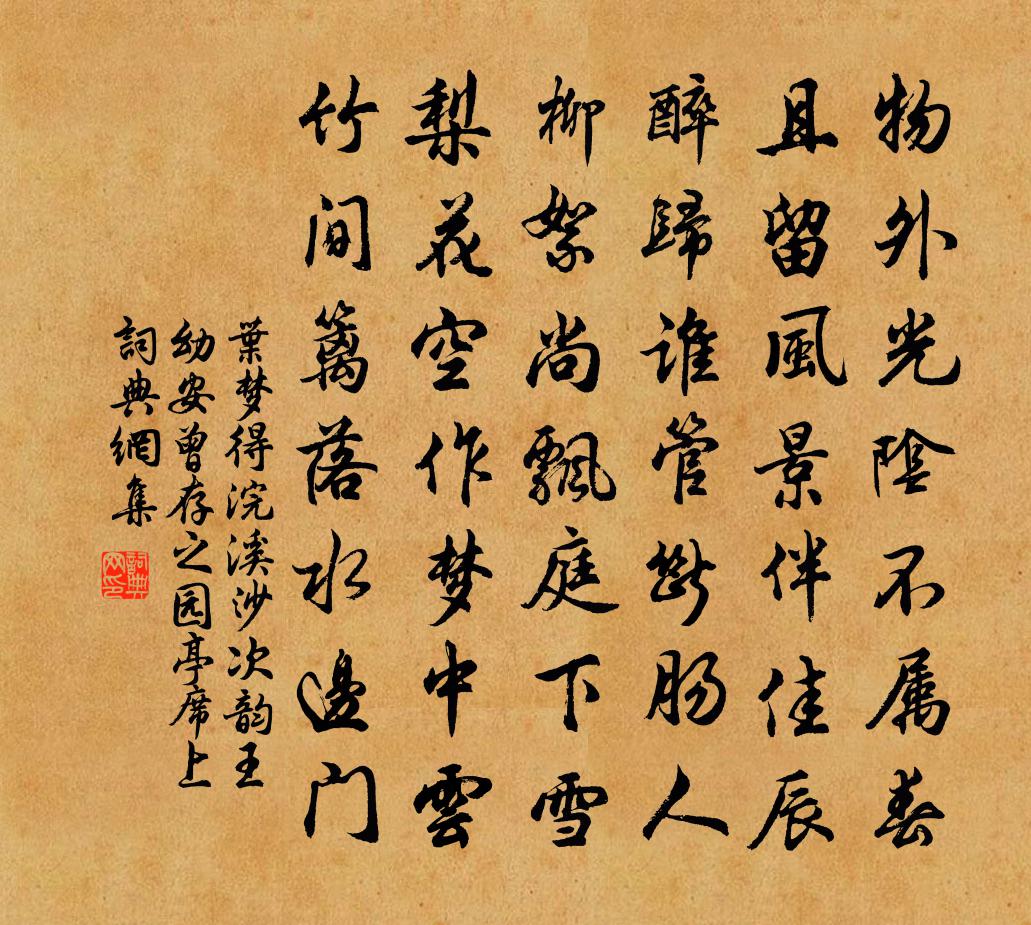 物外光陰不属春
且留風景伴佳辰
醉歸誰管斷肠人
柳絮尚飄庭下雪
梨花空作梦中雲
竹间篱落水邊门
葉梦得浣溪沙次韵王
幼安曾存之园亭席上
詞典網集
詞典
网印